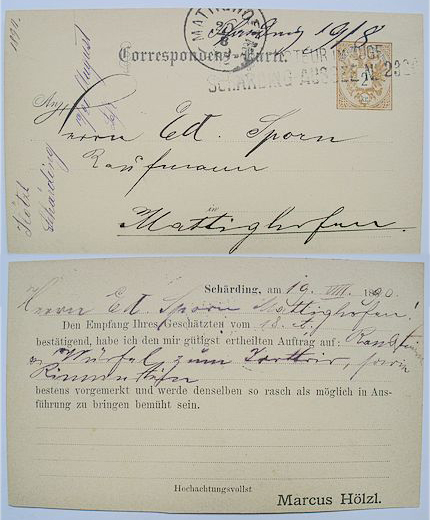 1890.
MATTIGHOFEN
Schärding 19/8
Correspondenz-Karte.
SCHÄRDING
2
An
9/8 August
Hölzl
Schärding
Herrn Ed. Sporn
Kaufmann
in
Mattighofen.
Schärding, am 19. VIII. 1890.
Herrn Ed. Sporn Mattighofen!
Den Empfang Ihres Geschätzten vom 18. d.
bestätigend, habe ich den mir gütigst ertheilten Auftrag auf: Randsteine
Würfel zum Trottoir, sowie
Rinnenstein
bestens vorgemerkt und werde denselben so rasch als möglich in Aus-
führung zu bringen bemüht sein.
Hochachtungsvollst
Marcus Hölzl.